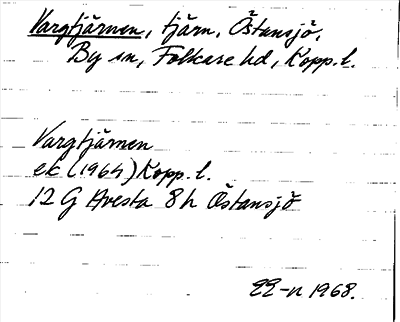 Vargtjärnen, tjärn, Östansjö,
By sn, Folkare hd, Kopp. l.
Vargtjärnen
ek (1964) Kopp. l.
12 G Avesta 8 h Östansjö
EE-n 1968.